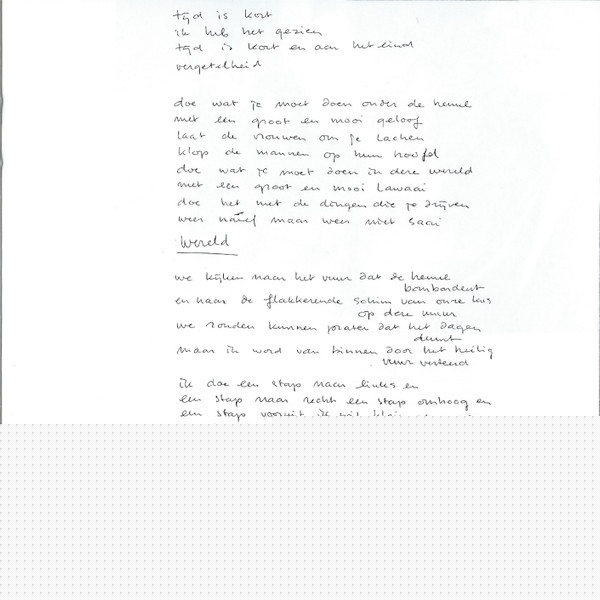 tijd is kort
ik heb het gezien
tijd is kort en aan het eind
vergetelheid
doe wat je moet doen onder de hemel
met een groot en mooi geloof
laat de vrouwen om je lachen
klop de mannen op hun hoofd
doe wat je moet doen in deze wereld
met een groot en mooi lawaai
doe het met de dingen die je drijven
wees naïef maar wees niet saai
Wereld
we kijken naar het vuur dat de hemel
bombardeert
en naar de flakkerende schim van onze kus
op deze muur
we zouden kunnen praten dat het dagen
duurt
maar ik word van binnen door het heilig
vuur verteerd
ik doe een stap naar links en
een stap naar recht een stap omhoog en
een stap vooruit ik